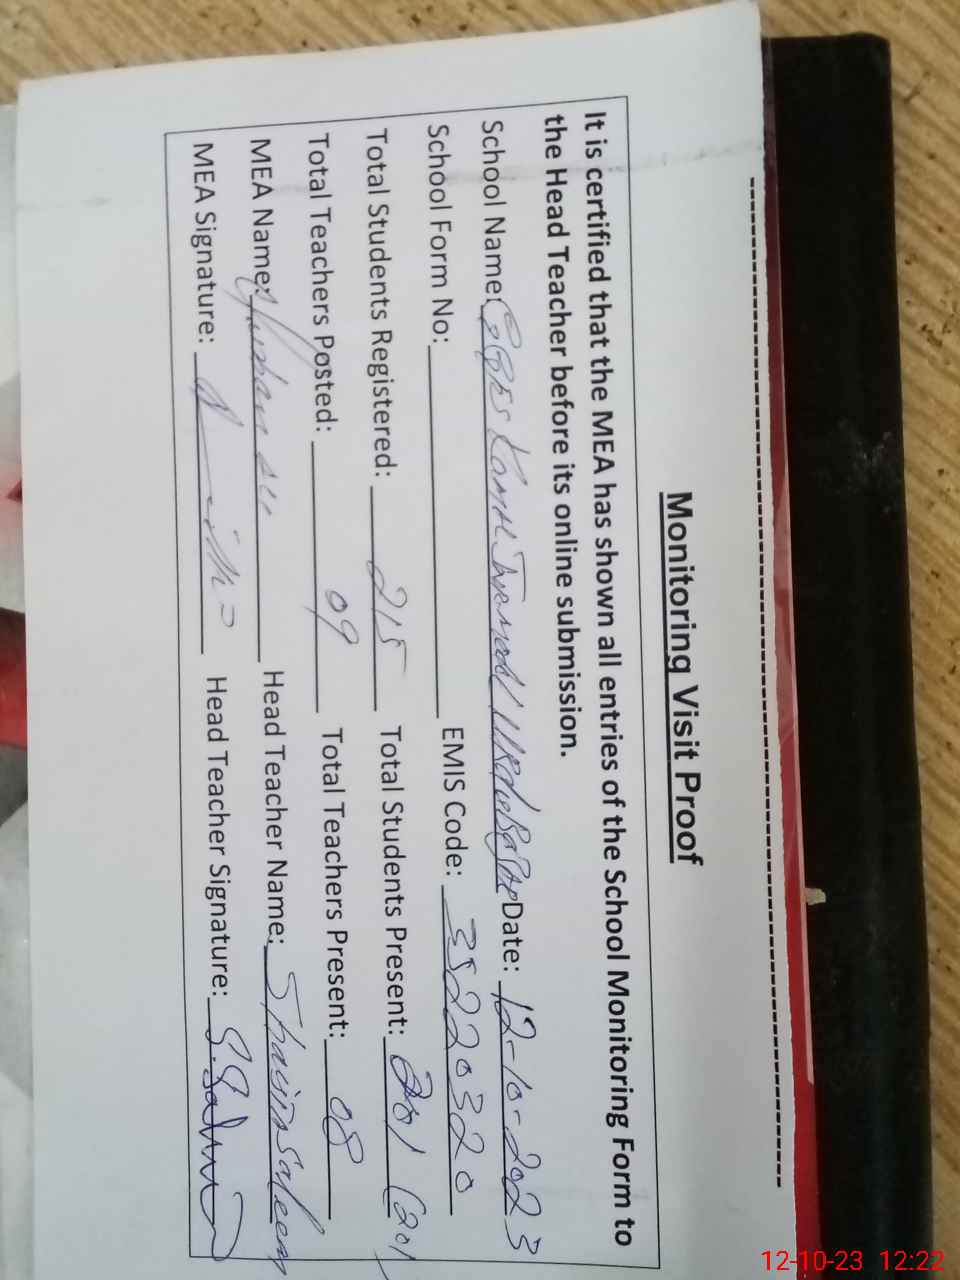 Monitoring Visit Proof
It is certified that the MEA has shown all entries of the School Monitoring Form to
the Head Teacher before its online submission.
School Name: Date: 12-10-2023
School Form No: EMIS Code: 35220320
Total Students Registered: 215 Total Students Present: 201 (201
Total Teachers Posted: 09 Total Teachers Present: 08
MEA Name: Head Teacher Name: Shaiita Saleem
MEA Signature: Head Teacher Signature: S.Salim
12-10-23 12:22